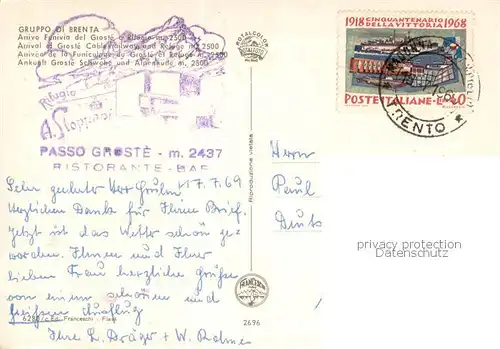 GRUPPO DI BRENTA
Arrivo Funivia del Grostè e Rifugio m. 2500
Arrival of Grostè Cable railways and Refuge m. 2500
Arrivée de la Funiculaire du Grostè et Refuge m. 2500
Ankunft Grostè Schwebe und Alpenhutte m. 2500
ROTALCOLOR
ROTALFOTO
1918 CINQUANTENARIO 1968
DELLA VITTORIA
POSTE ITALIANE L. 40
TRENTO *
Rifugio
PASSO GROSTÈ - m. 2437
RISTORANTE - BAR
17.7.69
Sehr geehrter Herr
Herzlichen Dank für Ihren Brief.
Jetzt ist das Wetter schön ge-
worden. Ihnen und Ihrer
lieben Frau herzliche Grüße
von einem schönen und
heißen Ausflug
Ihre L. Dräger + W.
Herrn
Paul
Deuts
Riproduzione vietata
FRANCESCHI
6280/c Ed. Franceschi -
2696
privacy protection
Datenschutz